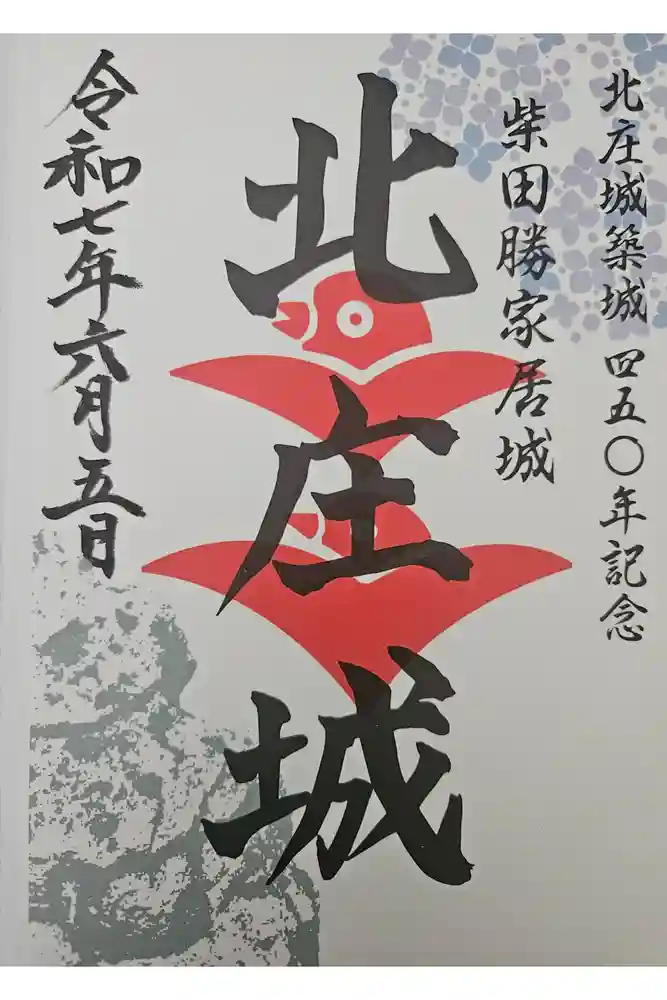 北庄城築城 四五〇年記念
柴田勝家居城
北庄城
令和七年六月五日